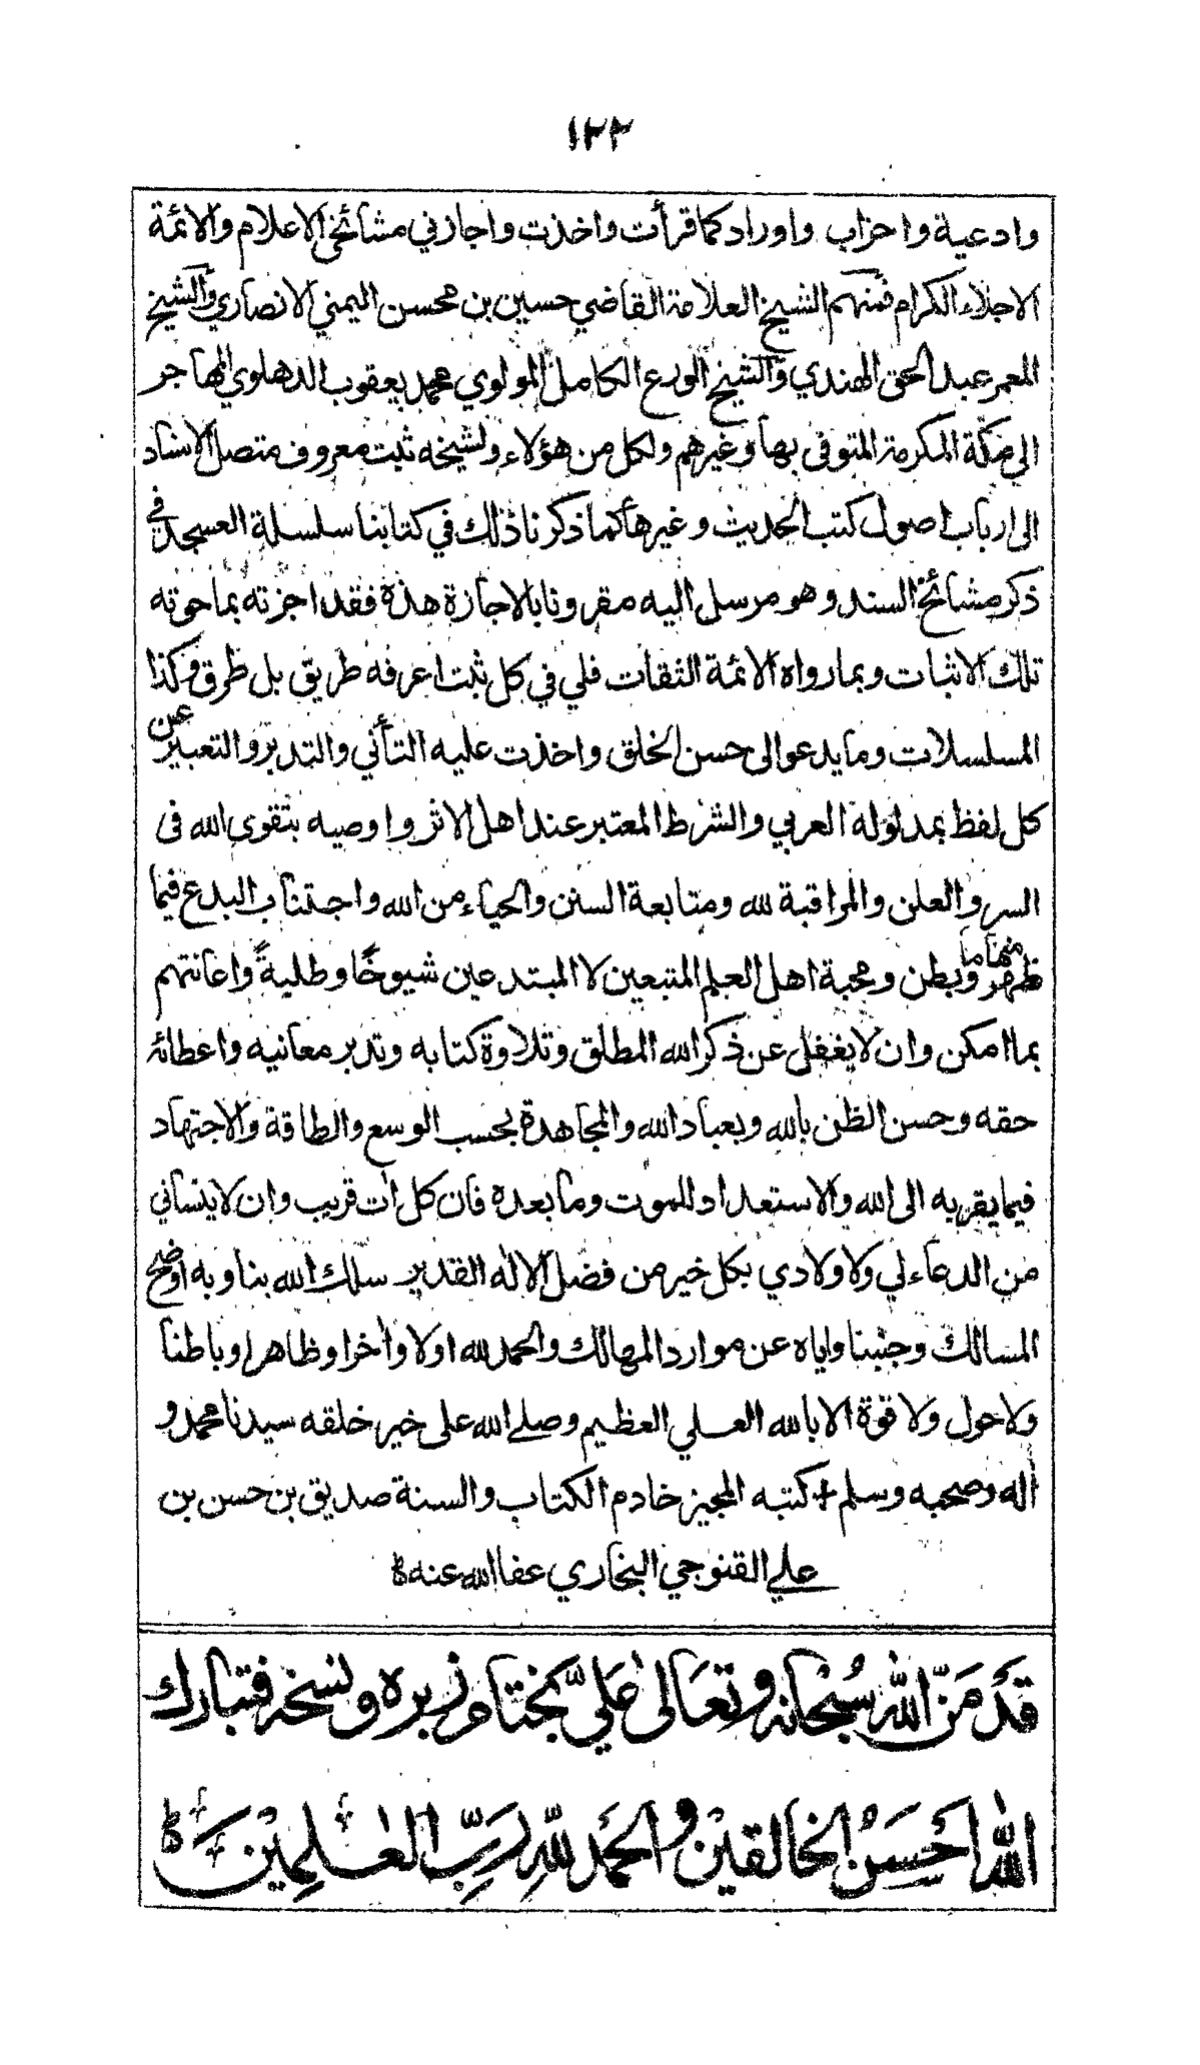 ١٢٣
وادعية واحزاب واوراد كما قرأت واخذت واجازني مشائخى الاعلام والائمة
الاجلاء الكرام فمنهم الشيخ العلامة القاضي حسين بن محسن اليمني الانصاري والشيخ
المعمر عبد الحق الهندي والشيخ الورع الكامل المولوي محمد يعقوب الدهلوي المهاجر
الى مكة المكرمة المتوفى بها وغيرهم ولكل من هؤلاء ولشيخه ثبت معروف متصل الاسناد
الى ارباب اصول كتب الحديث وغيرها كما ذكرنا ذلك في كتابنا سلسلة العسجد في
ذكر مشائخ السند وهو مرسل اليه مقرونا بالاجازة هذه فقد اجزته بما حوته
تلك الاثبات وبما رواه الائمة الثقات فلي في كل ثبت اعرفه طريق بل طرق وكذا
المسلسلات وما يدعو الى حسن الخلق واخذت عليه التأني والتدبر والتعبير عن
كل لفظ بمدلوله العربي والشرط المعتبر عند اهل الاثر واوصيه بتقوى الله فى
السر والعلن والمراقبة لله ومتابعة السنن والحياء من الله واجتناب البدع فيما
ظهر منها ما وبطن ومحبة اهل العلم المتبعين لا المبتدعين شيوخًا وطلبةً واعانتهم
بما امكن وان لا يغفل عن ذكر الله المطلق وتلاوة كتابه وتدبر معانيه واعطائه
حقه وحسن الظن بالله وبعباد الله والمجاهدة بحسب الوسع والطاقة والاجتهاد
فيما يقربه الى الله والاستعداد للموت وما بعده فان كل اٰت قريب وان لا ينساني
من الدعاء لي ولاولادي بكل خير من فضل الاله القدير سلك الله بنا وبه اوضح
المسالك وجنبنا واياه عن موارد المهالك والحمد لله اولا واٰخرا وظاهرا وباطنا
ولا حول ولا قوة الا بالله العلي العظيم وصلى الله على خير خلقه سيدنا محمد و
اٰله وصحبه وسلم + كتبه المجيز خادم الكتاب والسنة صديق بن حسن بن
علي القنوجي البخاري عفا الله عنه
قَدْ مَنّ الله سُبْحانه وتعَالىٰ عَليَّ بختام زبره ونسخه فتبارك
الله اَحْسَنُ الخالقيْن والحمَد للهِ رَبِّ العٰلمِيْن